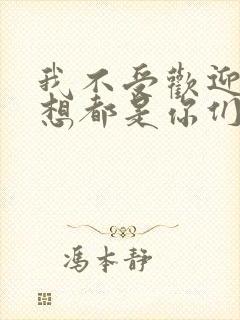 我不受歡迎
想都是你们
馮本静